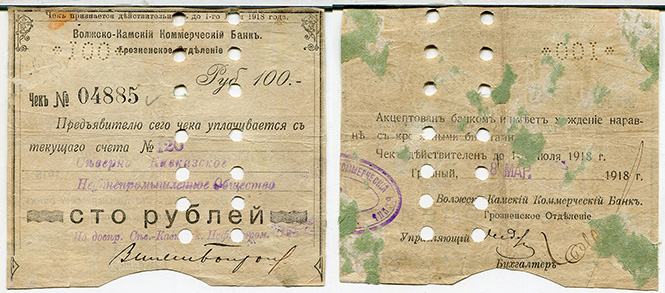 Чекъ признается дѣйствительнымъ до 1-го 1918 года.
Волжско-Камскій Коммерческій Банкъ.
Грозненское Отдѣленіе
*100*
Руб 100.-
Чекъ № 04885
Предъявителю сего чека уплачивается съ
текущаго счета № 120
Сѣверно Кавказское
Нефтепромышленное Общество
СТО РУБЛЕЙ
По довѣр.
*100*
Акцептованъ банкомъ и имѣетъ хожденіе нарав-
нѣ съ кредитными билетами.
Чекъ дѣйствителенъ до 1 іюля 1918 г.
Грозный, 8 МАР. 1918 г.
Волжско Камскій Коммерческій Банкъ.
Грозненское Отдѣленіе
Управляющій
Бухгалтеръ